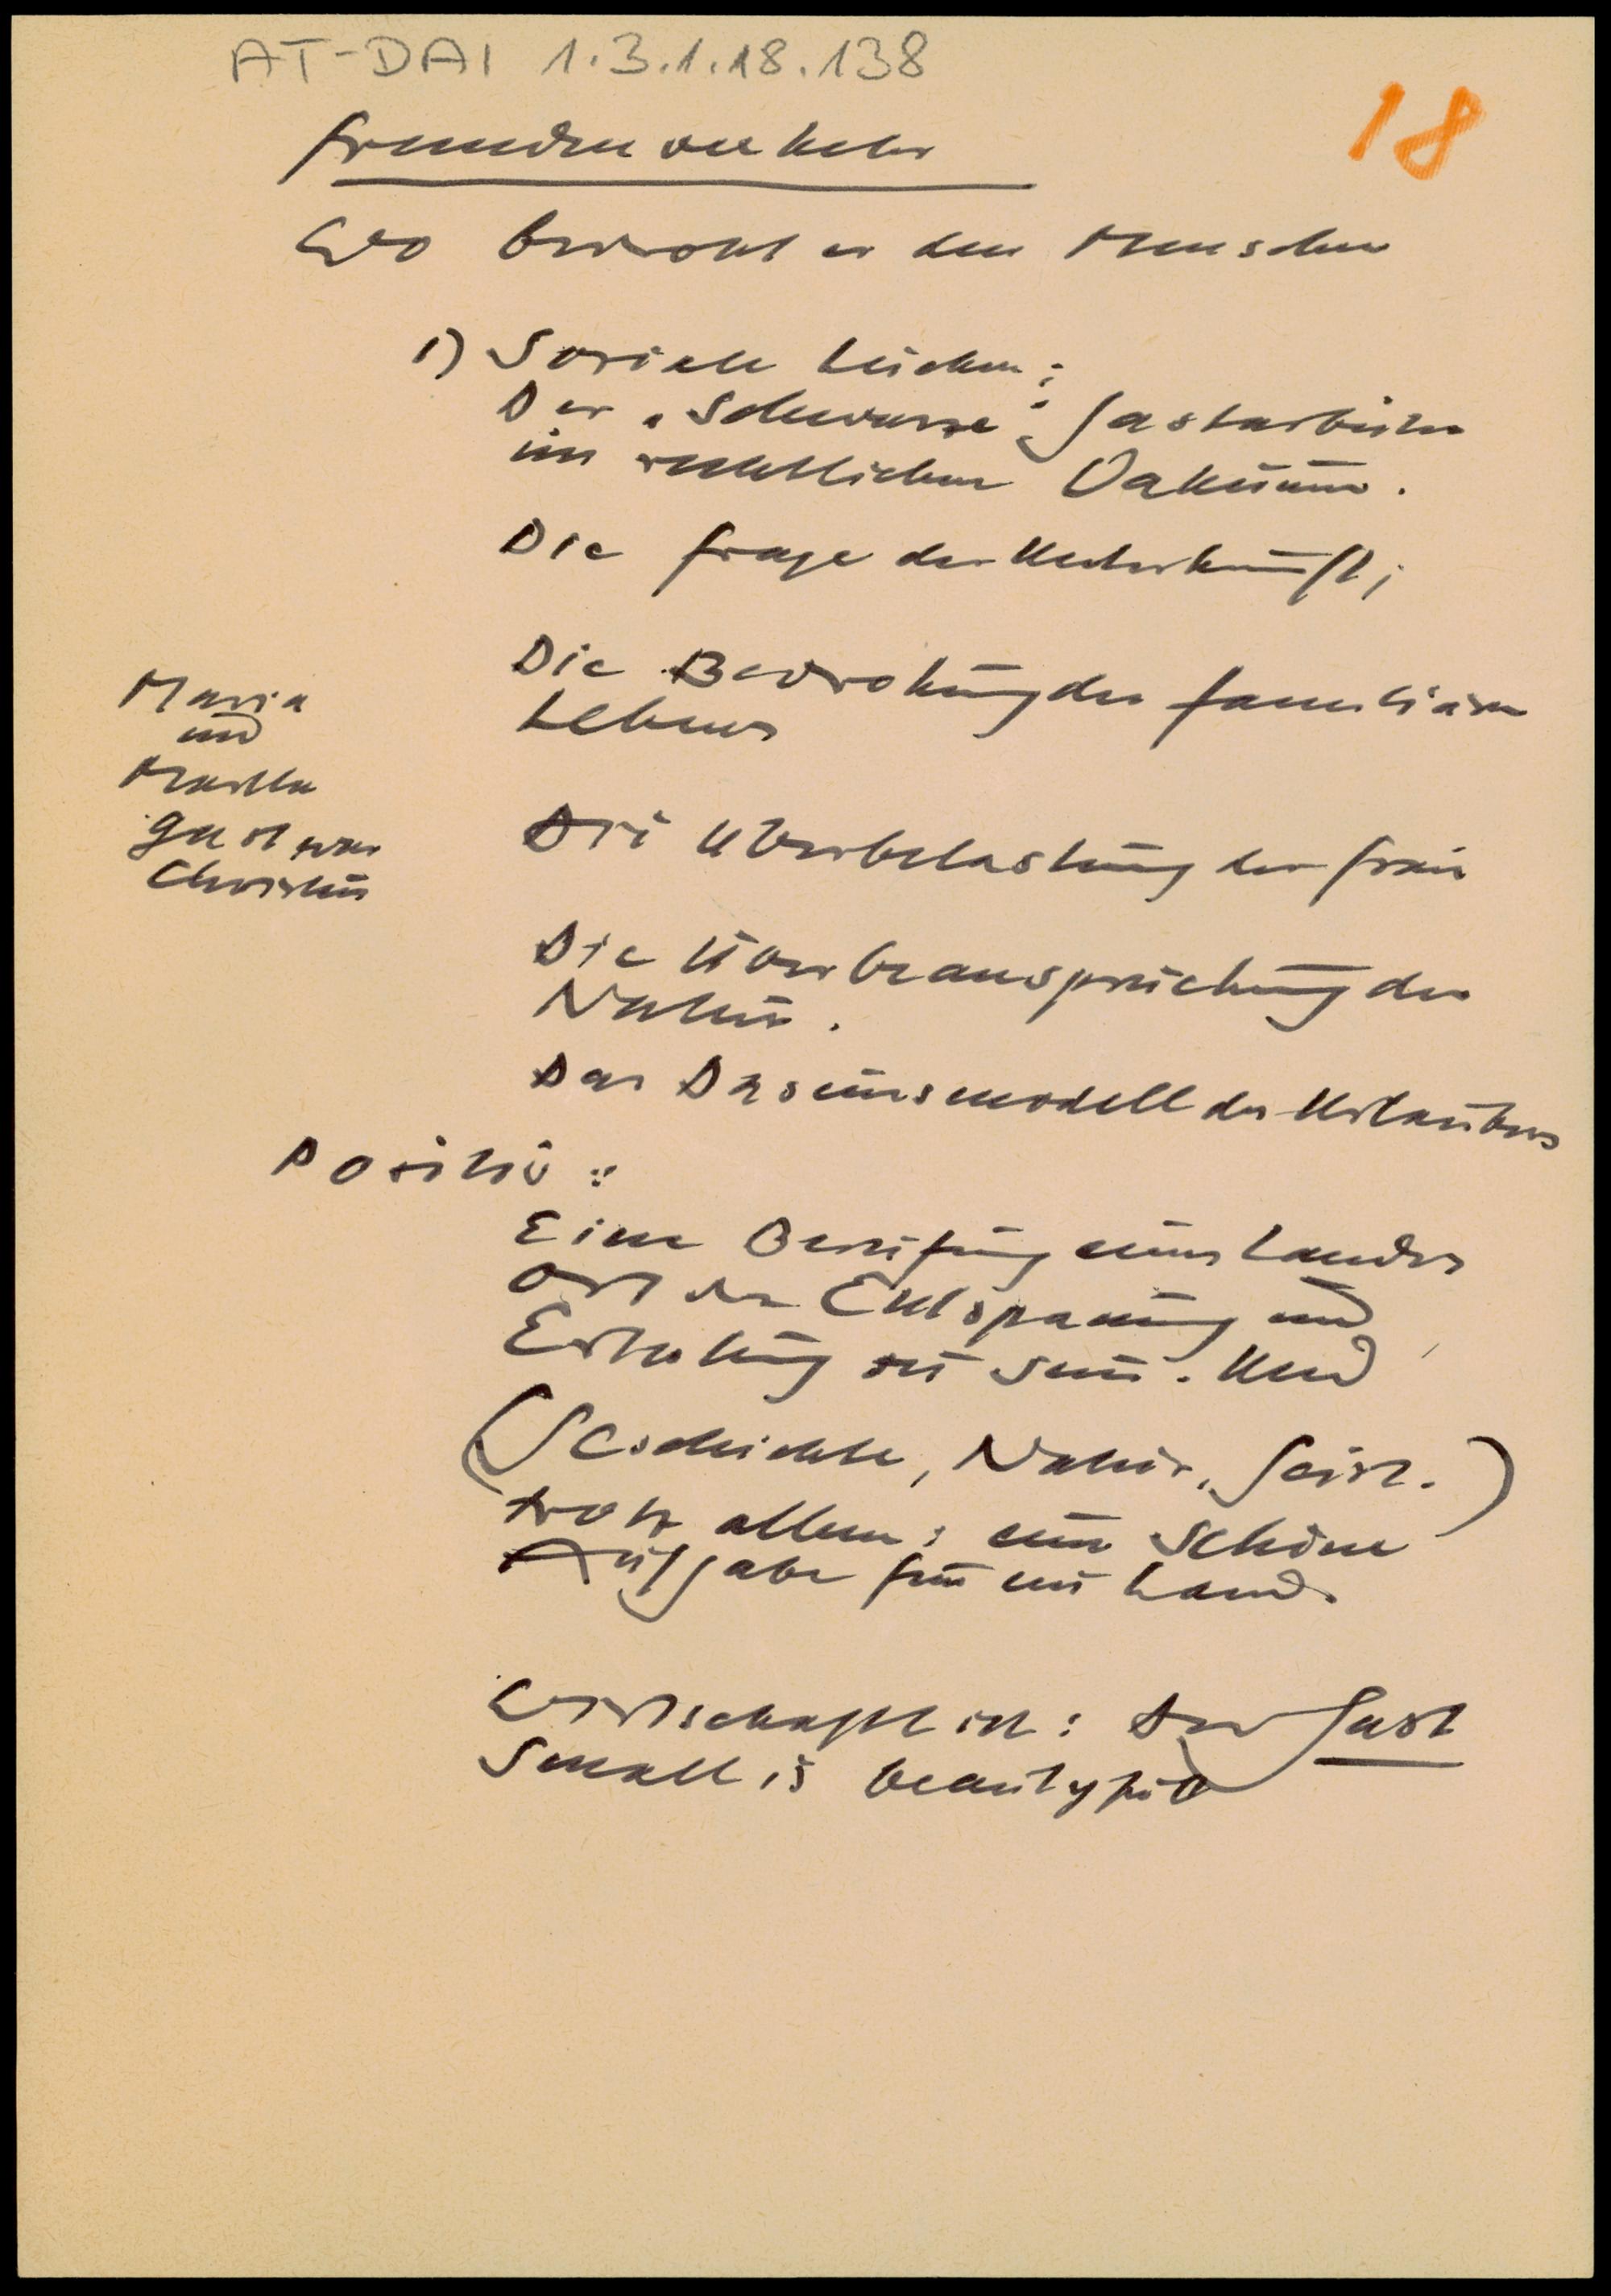 AT-DAI 1.3.1.18.138
18
Fremdenverkehr
Wo bedroht er den Menschen
1) Soziale Lücken:
Der „Schwarze" Gastarbeiter
im rechtlichen Vakuum.
Die Frage der Unterkunft,
Die Bedrohung des familiären
Lebens
Maria
und
Martha
Gast war
Christus
Die Überbelastung der Frau
Die Überbeanspruchung der
Natur.
Das Daseinsmodell des Urlaubers
Positiv:
Eine Berufung eines Landes
Ort der Entspannung und
Erholung zu sein. Und
(Geschichte, Natur, Geist.)
trotz allem: eine schöne
Aufgabe für ein Land.
Wirtschaftlich: Der Gast
Small is beautyful